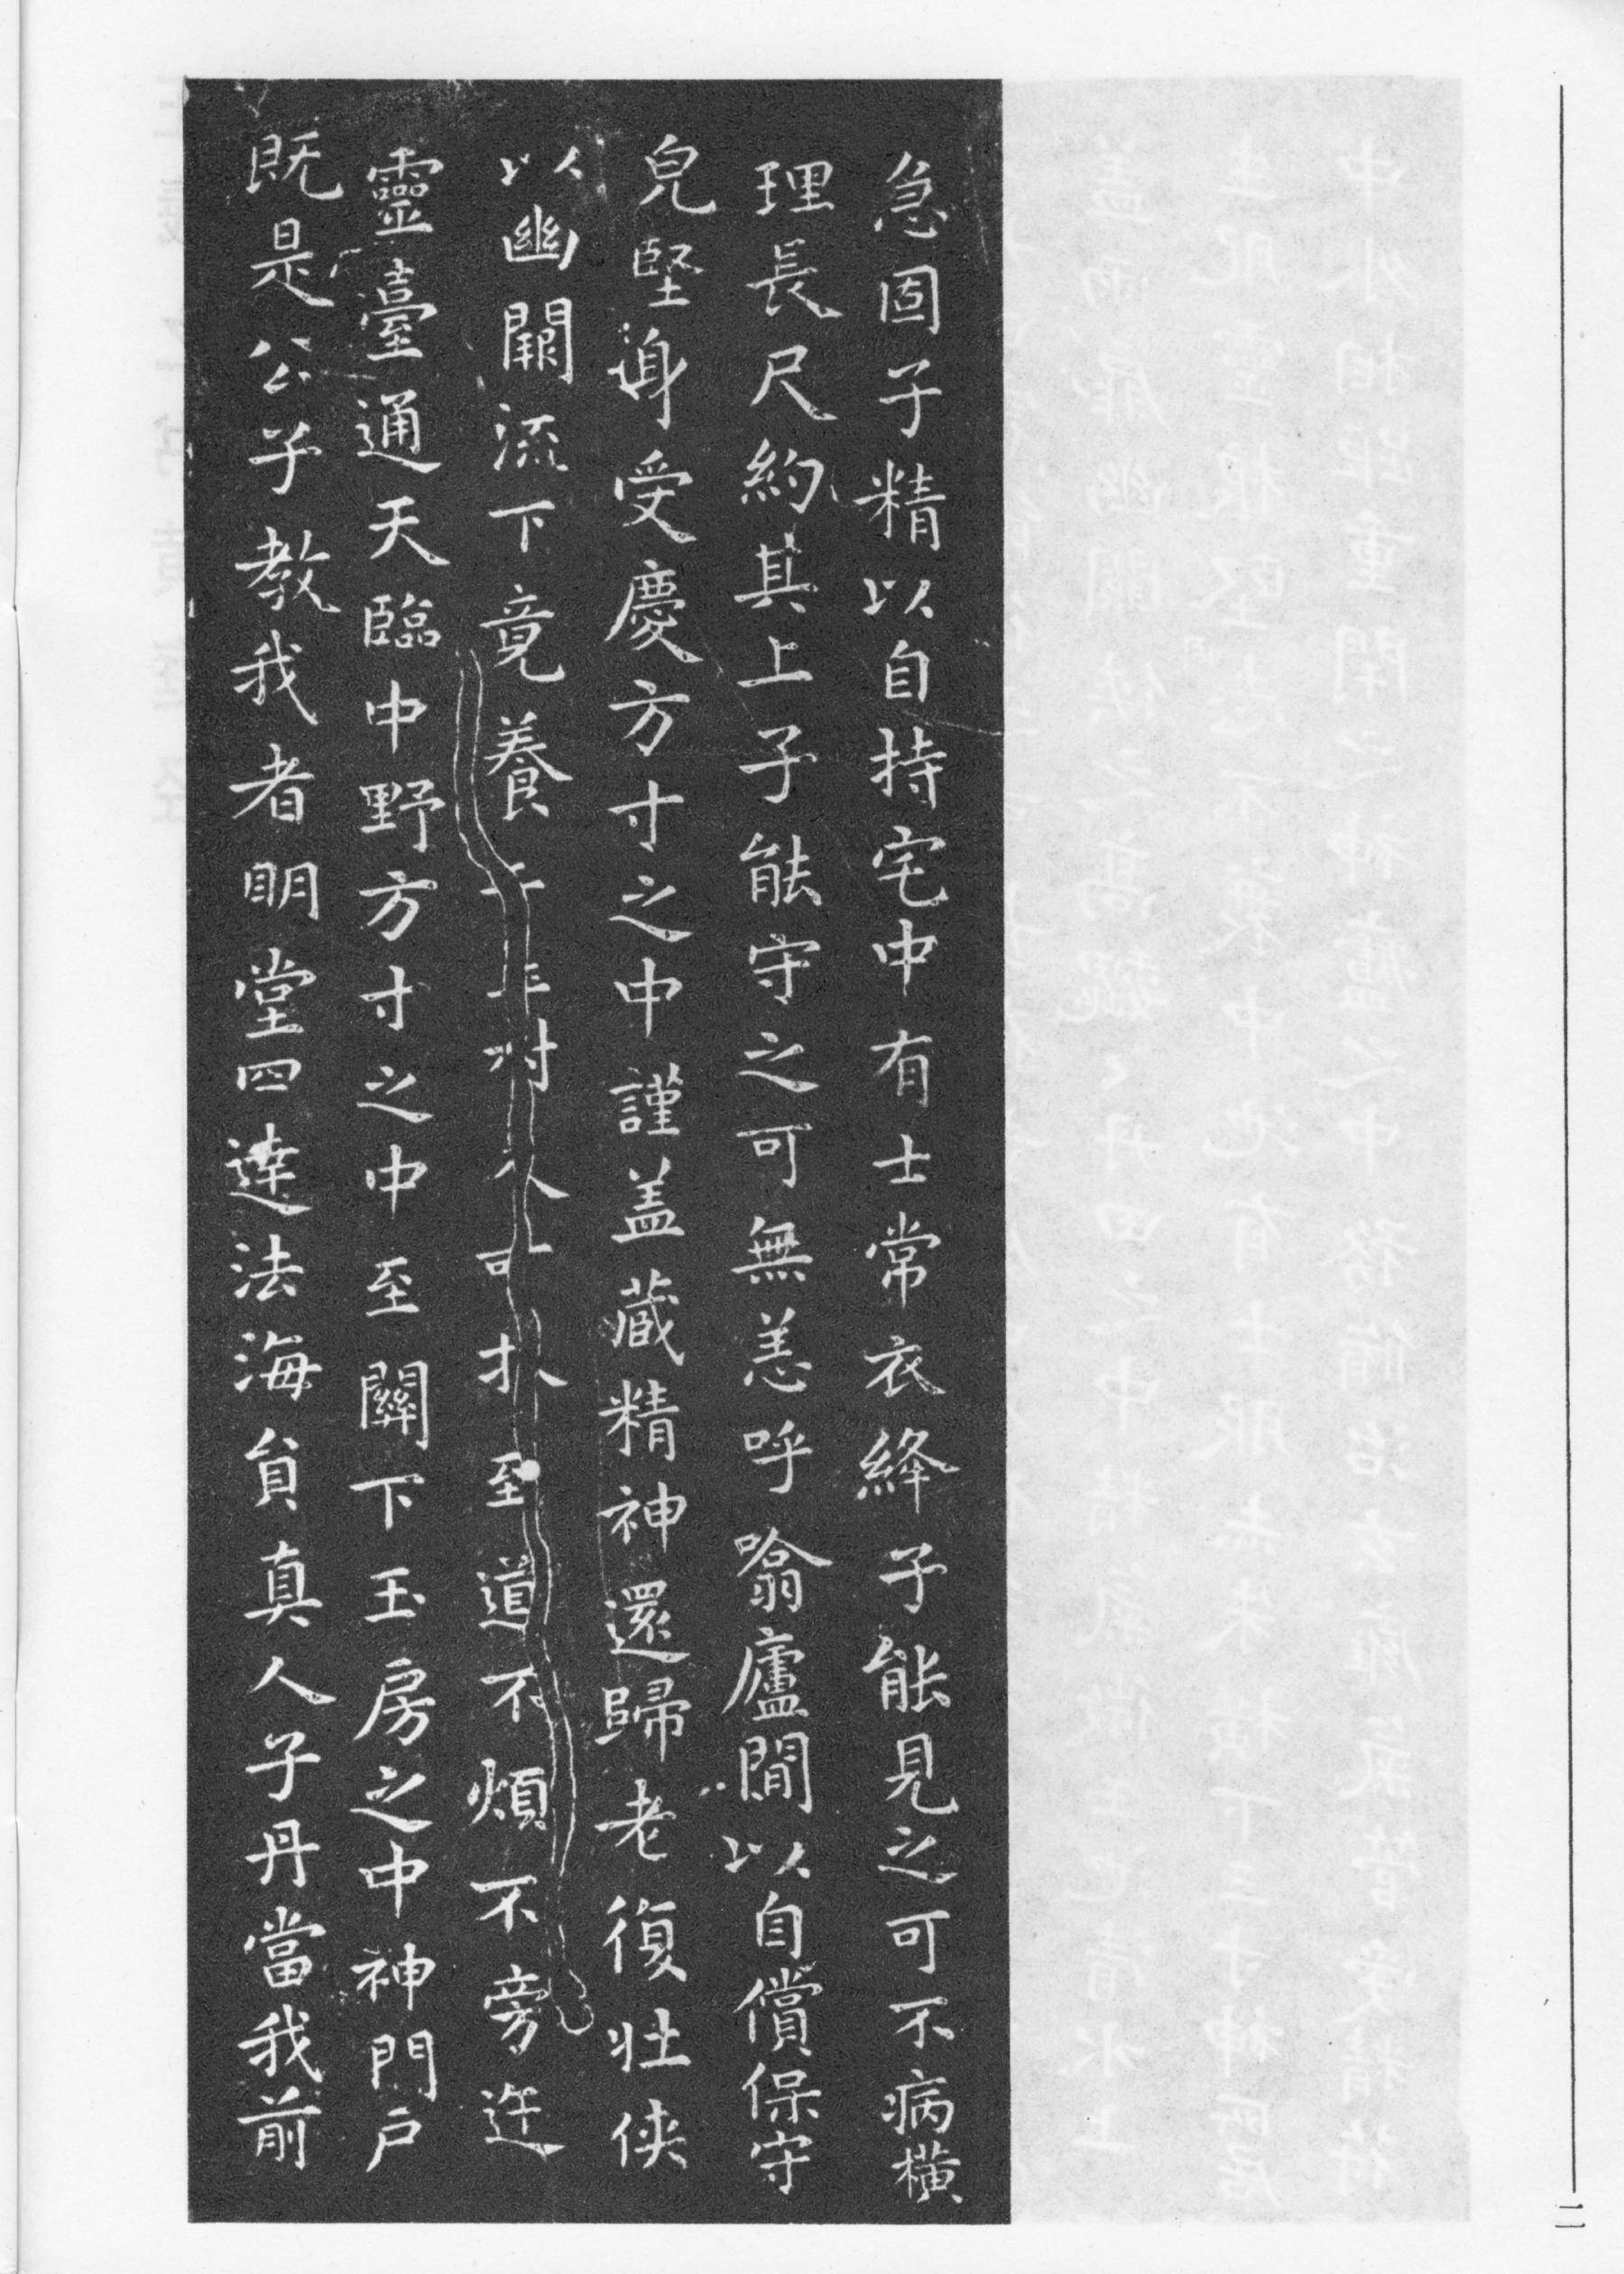 急固子精以自持宅中有士常衣絳子能見之可不病橫
理長尺約其上子能守之可無恙呼噏廬間以自償保守
皃堅身受慶方寸之中謹盖藏精神還歸老復壯俠
以幽闕流下竟養至道不煩不旁迕
靈臺通天臨中野方寸之中至關下玉房之中神門户
既是公子教我者明堂四達法海員真人子丹當我前
二